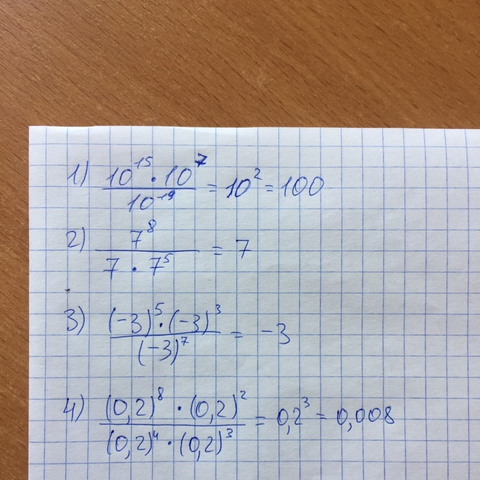 1) (10^15 · 10^7) / 10^19 = 10^2 = 100
2) 7^8 / (7 · 7^5) = 7
3) ((-3)^5 · (-3)^3) / (-3)^7 = -3
4) ((0,2)^8 · (0,2)^2) / ((0,2)^4 · (0,2)^3) = 0,2^3 = 0,008